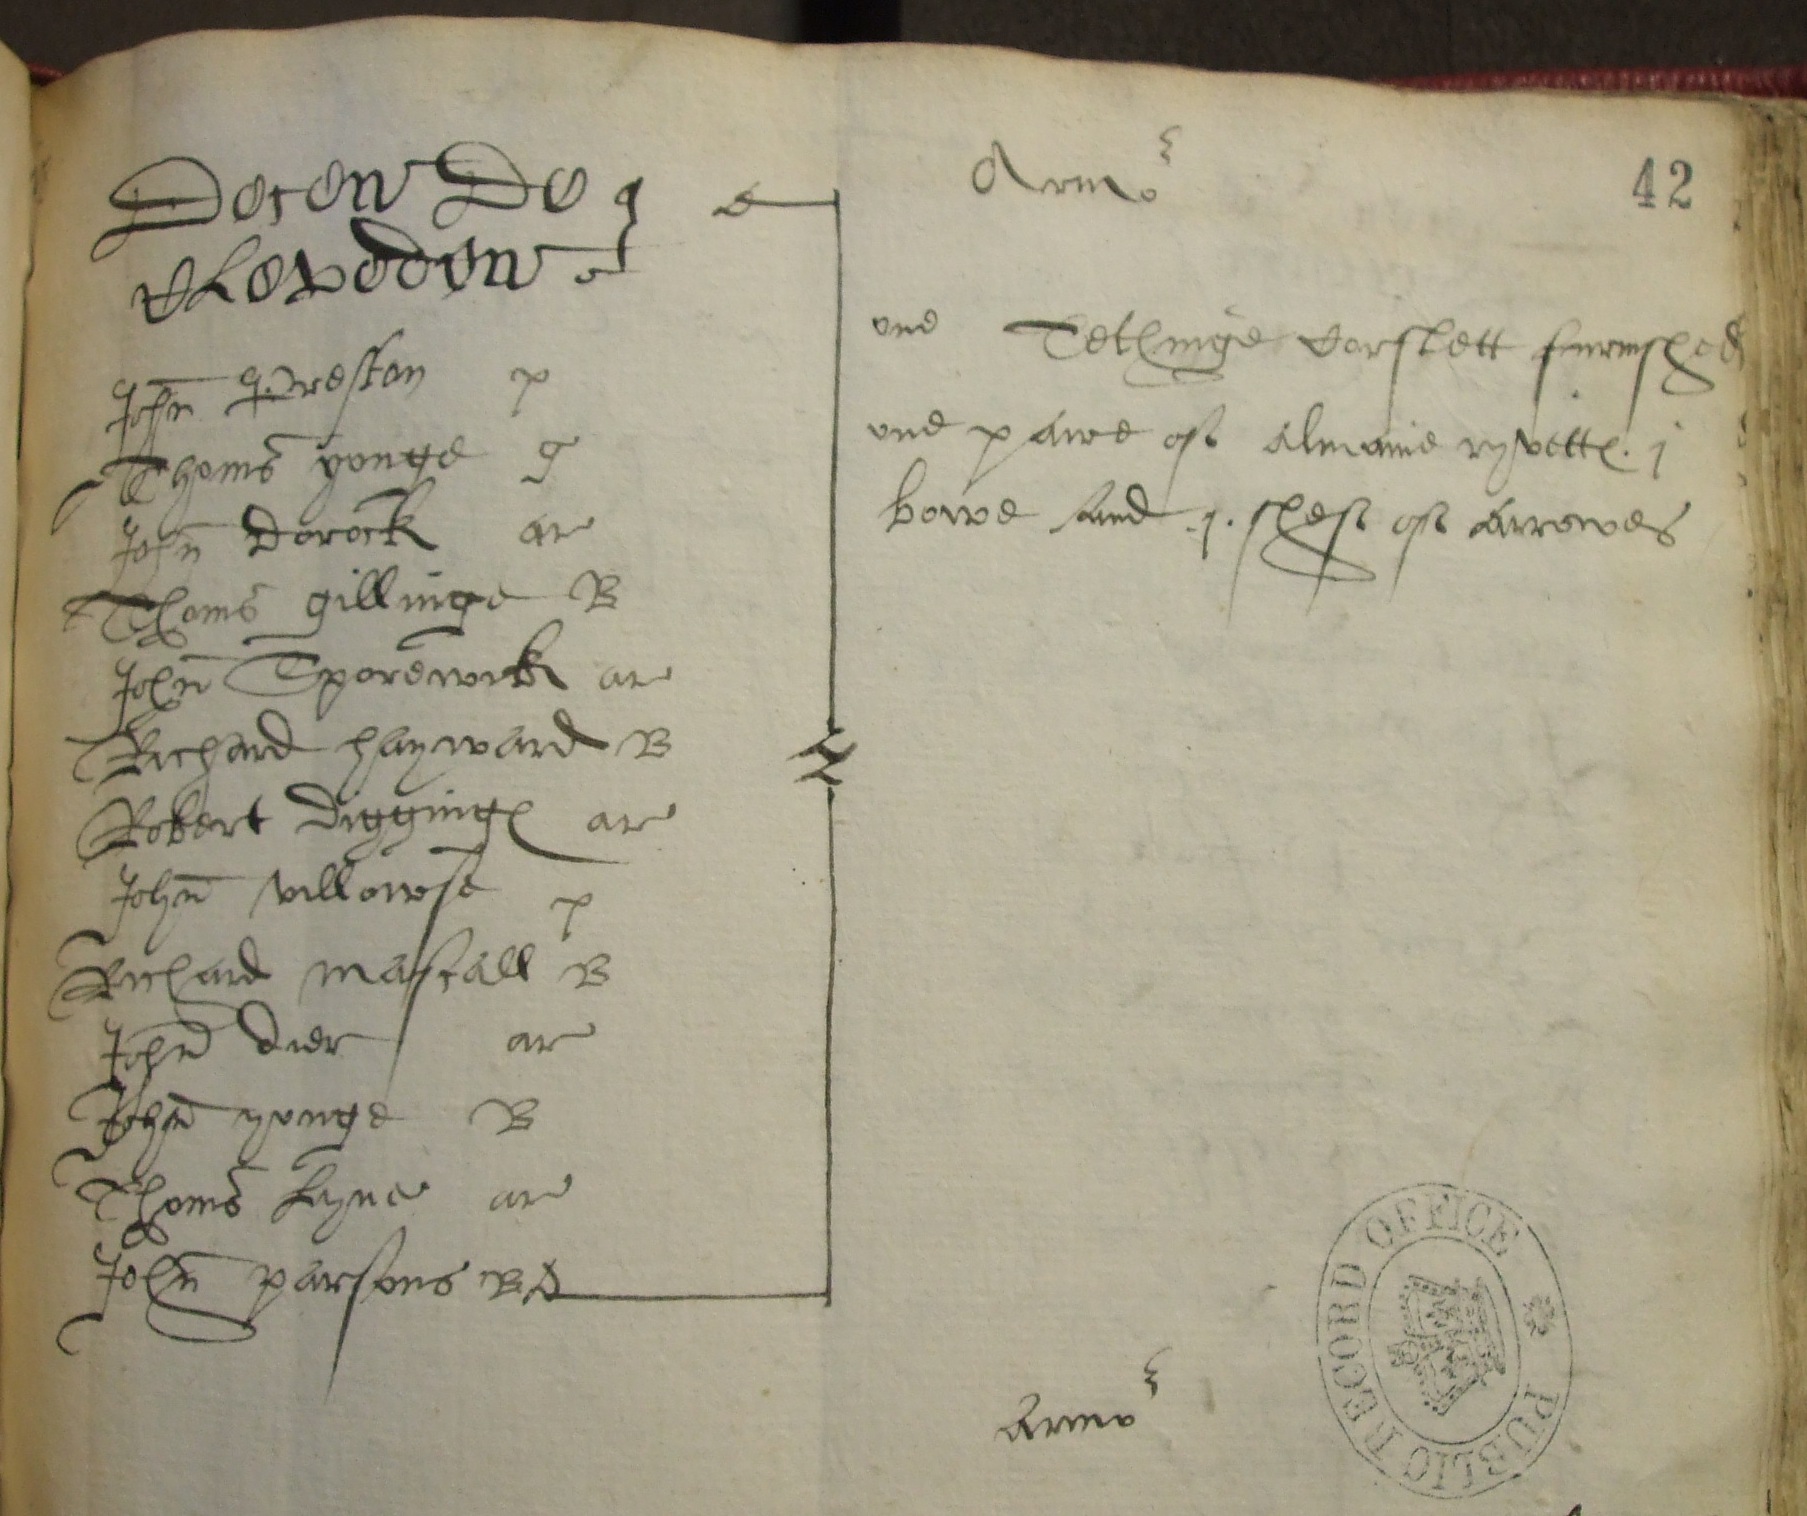 Decen De
Lovddon
John Preston p
Thoms yonge g
John Dorock ar
Thoms gillinge B
John Sporewick ar
Richard hayward B
Robert Digginges ar
John villowse p
Richard mascall B
John Dier ar
John yonge B
Thoms Lyne ar
John parsons B
Armor
42
one Tethinge Corslett furnished
one paire off almaine ryvettes j
bowe And .j. sheff off Arrowes
Armor
PUBLIC RECORD OFFICE